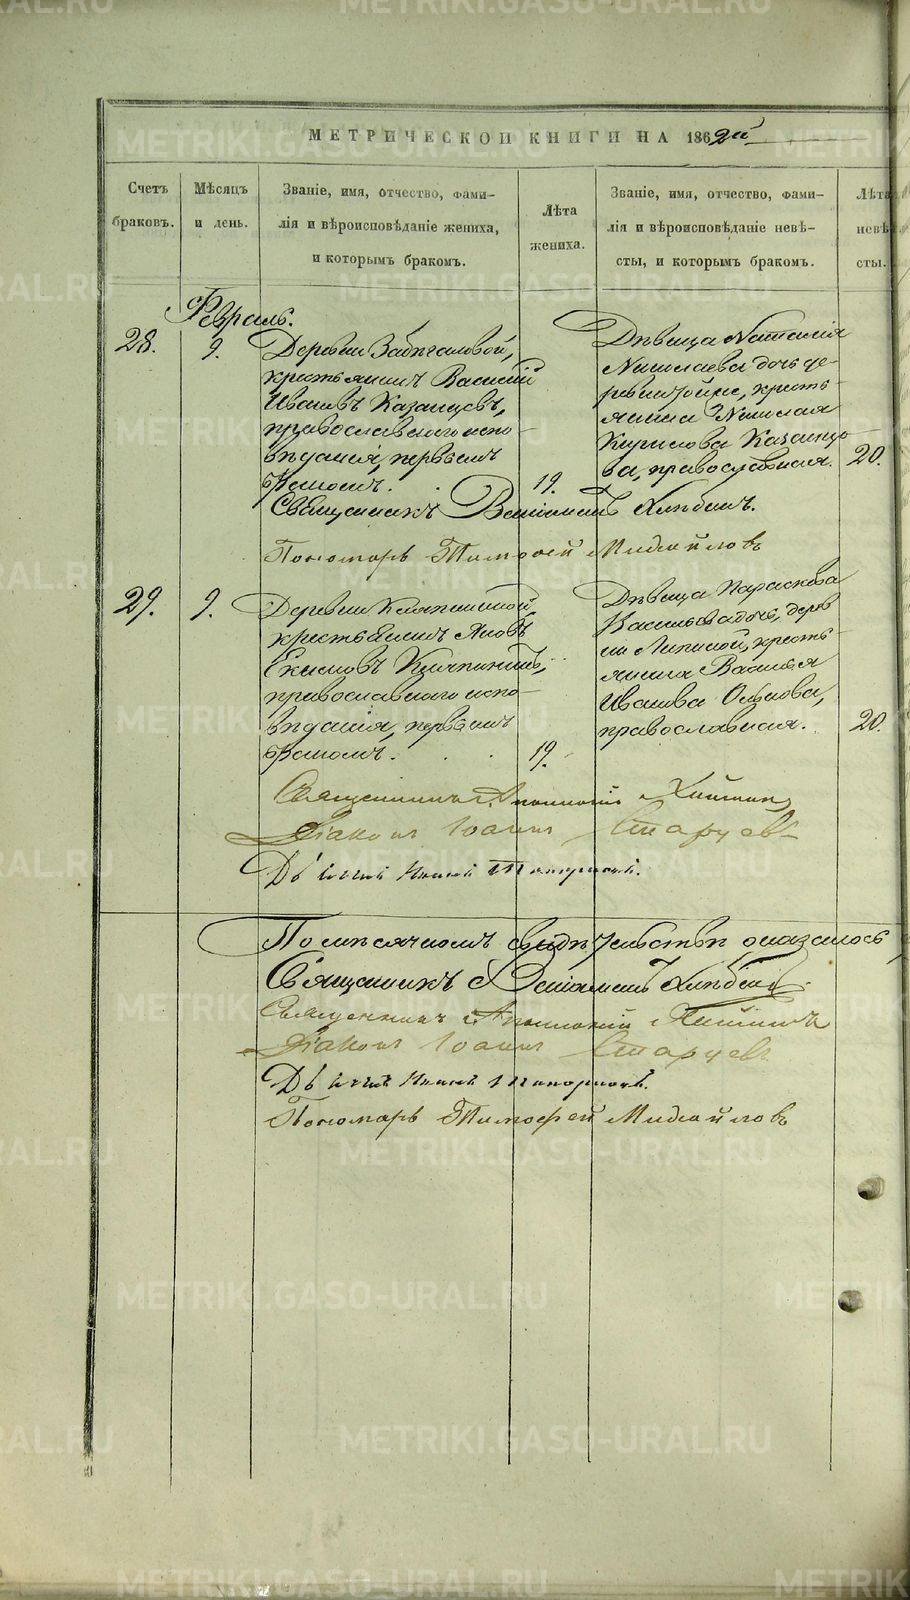 МЕТРИЧЕСКОЙ КНИГИ НА 1862й
Счетъ браковъ.
Мѣсяцъ и день.
Званіе, имя, отчество, фами-
лія и вѣроисповѣданіе жениха,
и которымъ бракомъ.
Лѣта жениха.
Званіе, имя, отчество, фами-
лія и вѣроисповѣданіе невѣ-
сты, и которымъ бракомъ.
Лѣта невѣ
сты.
Февраль.
28.
9.
Деревни Забѣгаловой,
крестьянинъ Василій
Ивановъ Казанцевъ,
православнаго испо-
вѣданія, первымъ
бракомъ.
19.
Дѣвица Наталія
Николаева дочь де-
ревни крестья-
нина Николая
Кирилова Казанцо-
ва, православная.
20.
Священникъ Веніаминъ Хлѣбинъ.
Пономарь Тимофей Михайловъ
29.
9.
Деревни Кляпининой,
крестьянинъ Яковъ
Екимовъ Кляпининъ,
православнаго испо-
вѣданія, первымъ
бракомъ.
19.
Дѣвица Параскева
Васильева дочь, дерев
ни Липиной, кресть-
янина Василья
Иванова
православная.
20.
Священникъ Аполлоній
Діаконъ Іоаннъ Старцевъ
По мѣсячномъ свидѣтельствѣ оказалось
Священникъ Веніаминъ Хлѣбинъ
Священникъ Аполлоній
Діаконъ Іоаннъ Старцевъ
Пономарь Тимофей Михайловъ
METRIKI.GASO-URAL.RU